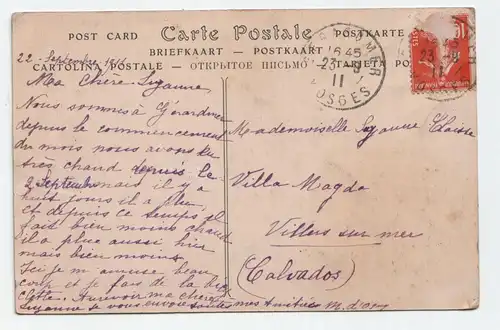 POST CARD Carte Postale POSTKARTE
BRIEFKAART - POSTKAART
CARTOLINA POSTALE - ОТКРЫТОЕ ПИСЬМО TARJETA
22 Septembre
Ma Chère Suzanne
Nous sommes à Gérardmer
depuis le commencement
du mois nous avons eu
très chaud depuis le
2 Septembre mais il y a
huit jours il a plu
et depuis ce temps il
fait bien moins chaud
il a plue aussi hier
mais bien moins.
Ici je m'amuse beau
coup et je fais de la
Aurevoir ma chère
Suzanne je vous envoie toutes mes Amitiés M.
16 45
23 -9
11
VOSGES
Mademoiselle Suzanne
Villa Magda
Villers sur mer
(Calvados)